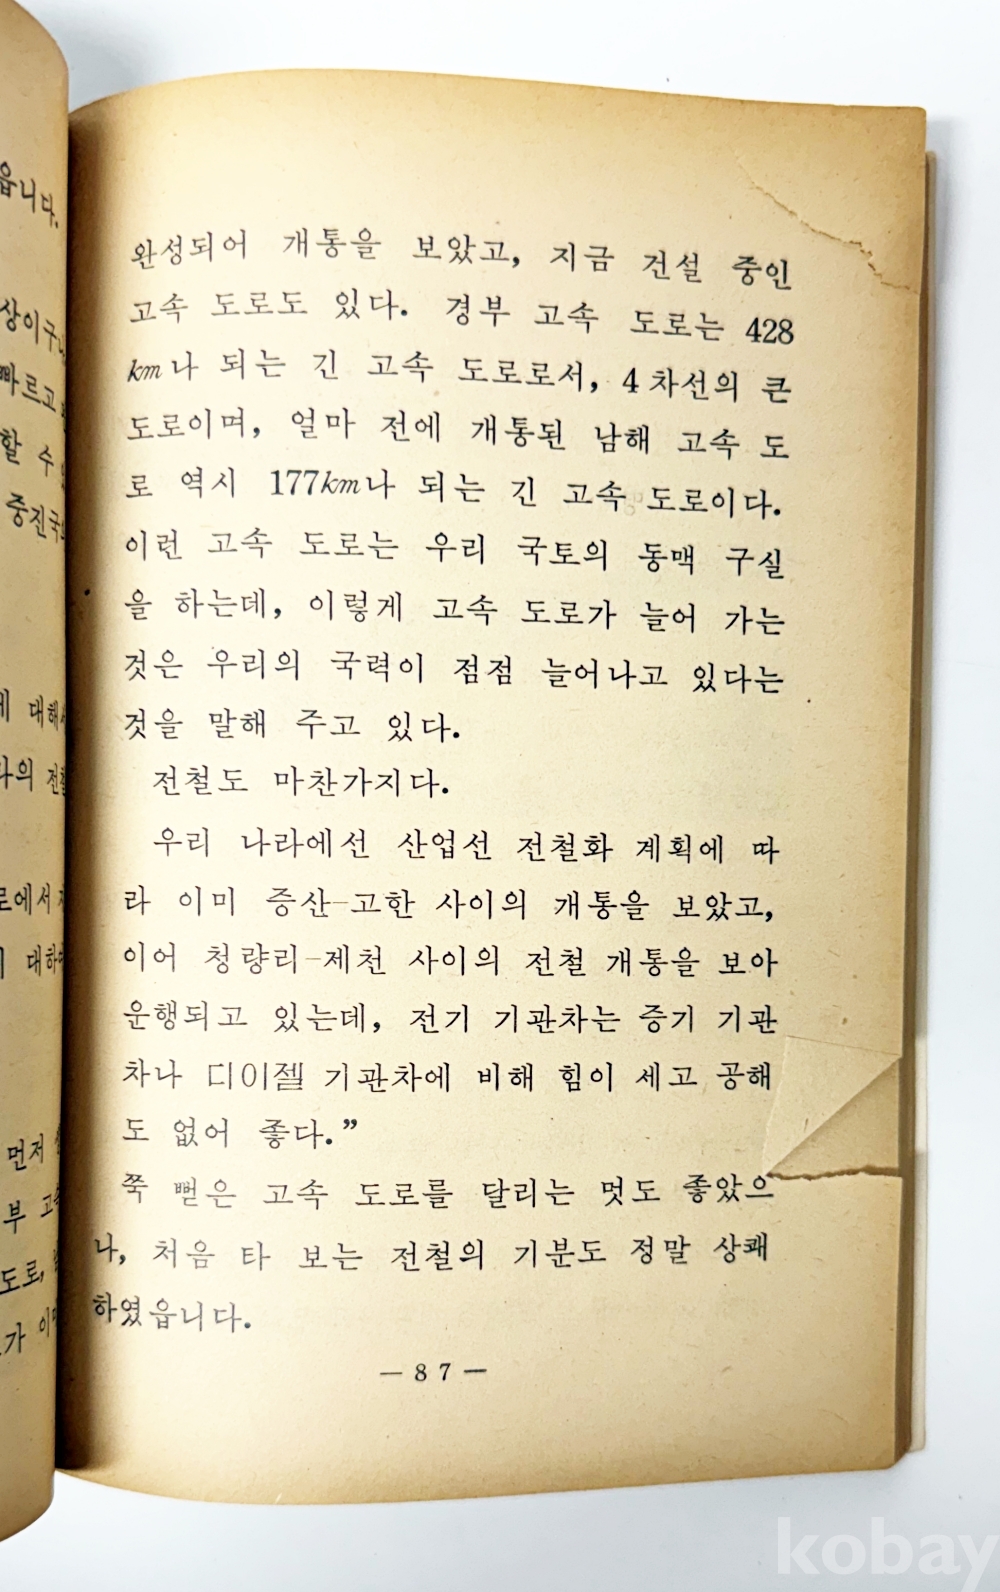 읍니다.
상이구나
빠르고
할 수
중진국
대해서
나의 전철
로에서
대하여
먼저
부 고속
도로,
가
완성되어 개통을 보았고, 지금 건설 중인
고속 도로도 있다. 경부 고속 도로는 428
km나 되는 긴 고속 도로로서, 4차선의 큰
도로이며, 얼마 전에 개통된 남해 고속 도
로 역시 177km나 되는 긴 고속 도로이다.
이런 고속 도로는 우리 국토의 동맥 구실
을 하는데, 이렇게 고속 도로가 늘어 가는
것은 우리의 국력이 점점 늘어나고 있다는
것을 말해 주고 있다.
전철도 마찬가지다.
우리 나라에선 산업선 전철화 계획에 따
라 이미 증산-고한 사이의 개통을 보았고,
이어 청량리-제천 사이의 전철 개통을 보아
운행되고 있는데, 전기 기관차는 증기 기관
차나 디이젤 기관차에 비해 힘이 세고 공해
도 없어 좋다.”
쭉 뻗은 고속 도로를 달리는 멋도 좋았으
나, 처음 타 보는 전철의 기분도 정말 상쾌
하였읍니다.
— 87 —
kobay